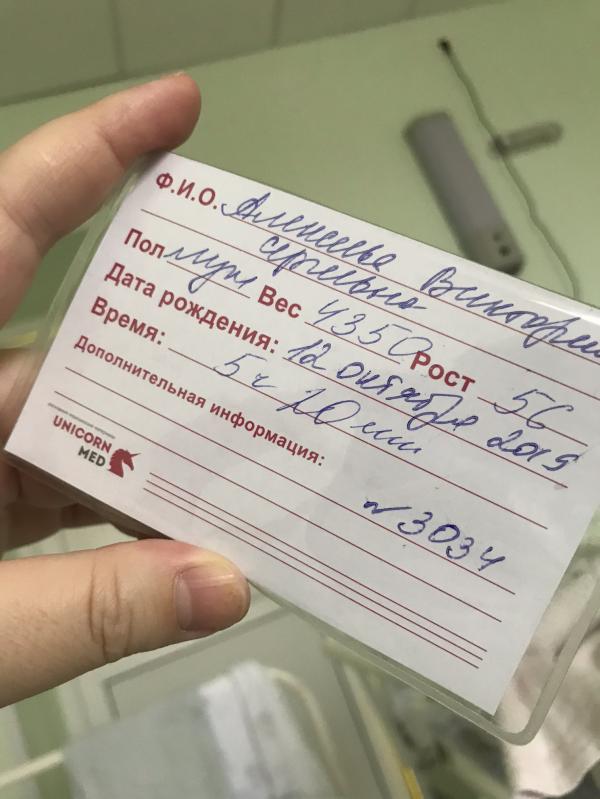 Ф.И.О. Алексеева Виктория
Сергеевна
Пол муж Вес 4350 Рост 56
Дата рождения: 12 октября 2019
Время: 5ч 20 мин
Дополнительная информация:
N 3034
UNICORN
MED